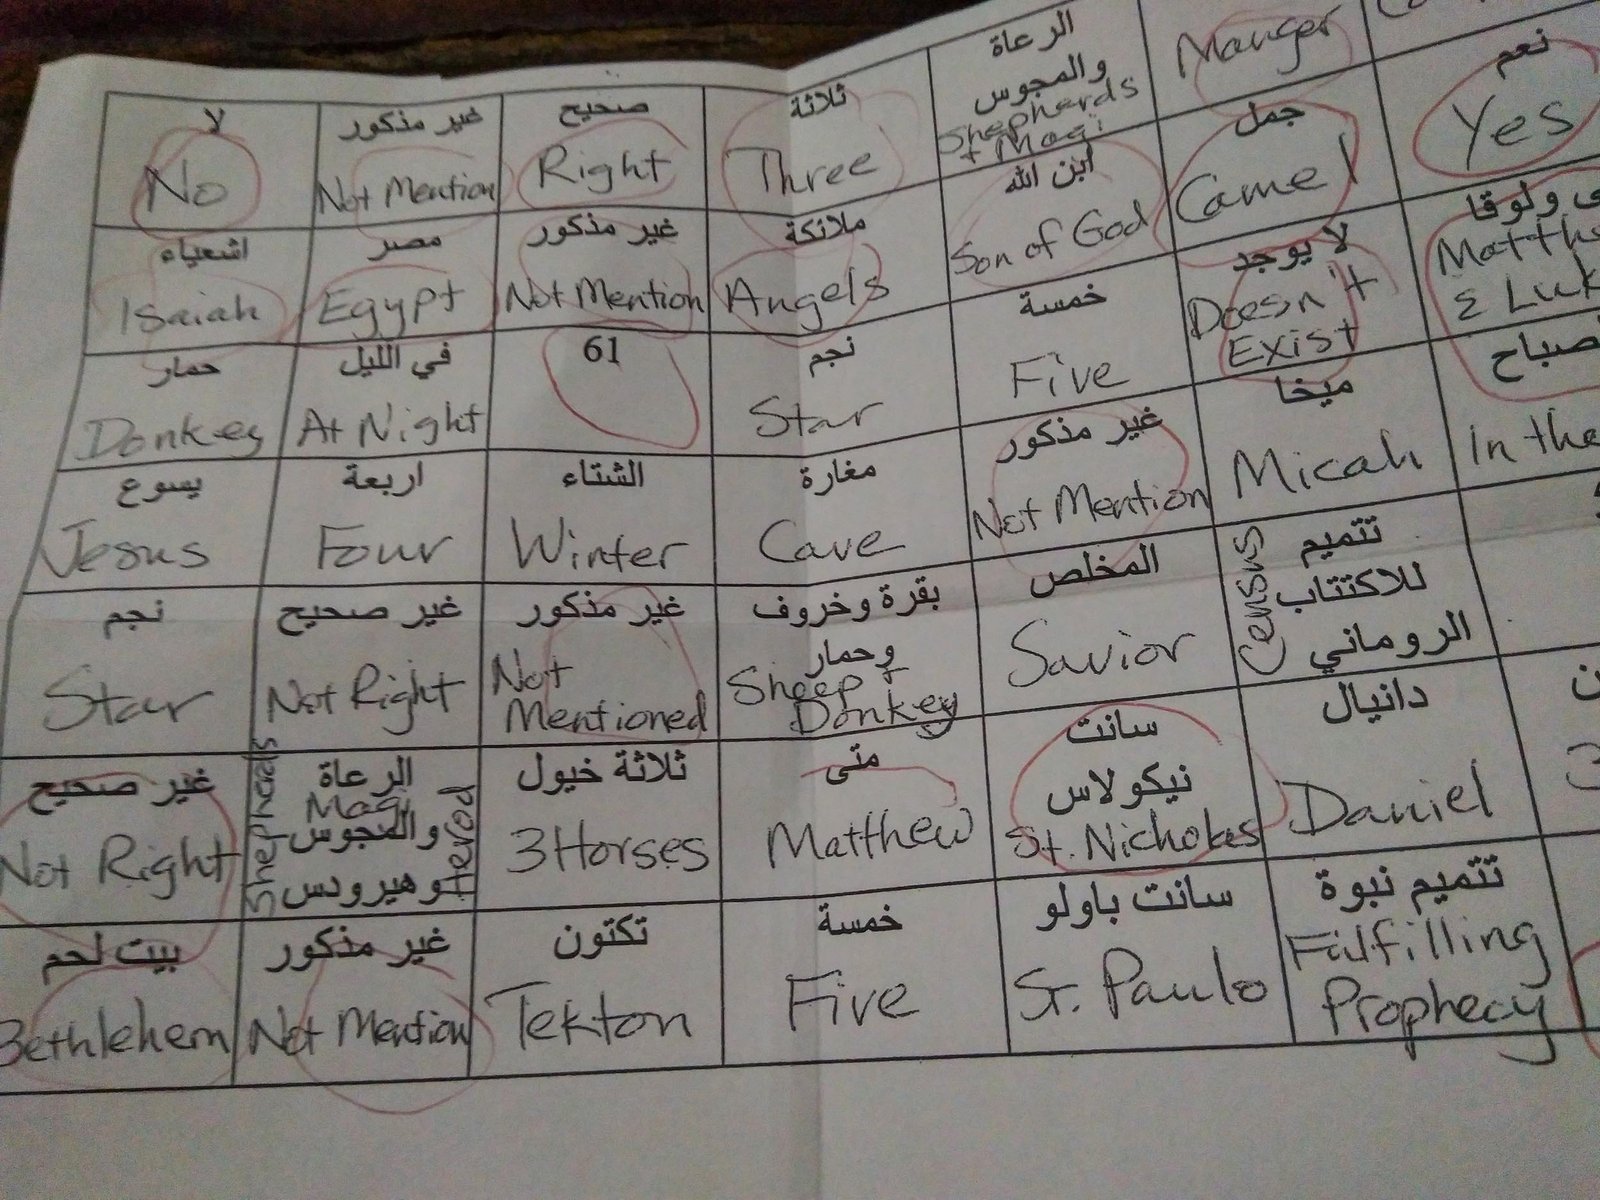 لا
No
غير مذكور
Not Mention
صحيح
Right
ثلاثة
Three
الرعاة
والمجوس
Shepherds
+ Magi
Manger
نعم
Yes
اشعياء
Isaiah
مصر
Egypt
غير مذكور
Not Mention
ملائكة
Angels
ابن الله
Son of God
جمل
Camel
ولوقا
& Luk
حمار
Donkey
في الليل
At Night
61
نجم
Star
خمسة
Five
لا يوجد
Doesn't
Exist
صباح
In the
يسوع
Jesus
اربعة
Four
الشتاء
Winter
مغارة
Cave
غير مذكور
Not Mention
ميخا
Micah
نجم
Star
غير صحيح
Not Right
غير مذكور
Not
Mentioned
بقرة وخروف
وحمار
Sheep +
Donkey
المخلص
Savior
تتميم
للاكتتاب
الروماني
Census
غير صحيح
Not Right
الرعاة
والمجوس
وهيرودس
Shepherds
Magi
Herod
ثلاثة خيول
3 Horses
متى
Matthew
سانت
نيكولاس
St. Nicholas
دانيال
Daniel
بيت لحم
Bethlehem
غير مذكور
Not Mention
تكتون
Tekton
خمسة
Five
سانت باولو
St. Paulo
تتميم نبوة
Fulfilling
Prophecy